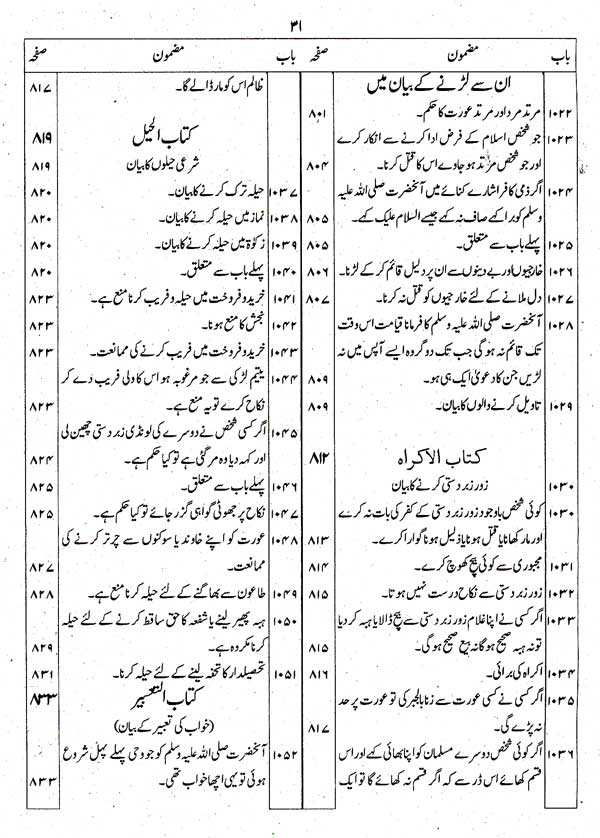 ۳۱
باب مضمون صفحہ
ان سے لڑنے کے بیان میں
۱۰۲۲ مرتد مرد اور مرتد عورت کا حکم۔ ۸۰۱
۱۰۲۳ جو شخص اسلام کے فرض ادا کرنے سے انکار کرے
اور جو شخص مرتد ہو جاوے اس کا قتل کرنا۔ ۸۰۴
۱۰۲۴ اگر ذمی کافر اشارے کنائے میں آنحضرت صلی اللہ علیہ
وسلم کو برا کہے صاف نہ کہے جیسے السلام علیک کہے۔ ۸۰۵
۱۰۲۵ پہلے باب سے متعلق۔ ۸۰۵
۱۰۲۶ خارجیوں اور بے دینوں سے ان پر دلیل قائم کر کے لڑنا۔ ۸۰۶
۱۰۲۷ دل ملانے کے لئے خارجیوں کو قتل نہ کرنا۔ ۸۰۷
۱۰۲۸ آنحضرت صلی اللہ علیہ وسلم کا فرمانا قیامت اس وقت
تک قائم نہ ہو گی جب تک دو گروہ ایسے آپس میں نہ
لڑیں جن کا دعویٰ ایک ہی ہو۔ ۸۰۹
۱۰۲۹ تاویل کرنے والوں کا بیان۔ ۸۰۹
کتاب الاکراہ ۸۱۲
زور زبردستی کرنے کا بیان
۱۰۳۰
۱۰۳۰ کوئی شخص باوجود زور زبردستی کے کفر کی بات نہ کرے
اور مار کھانا یا قتل ہونا یا ذلیل ہونا گوارا کرے۔ ۸۱۳
۱۰۳۱ مجبوری سے کوئی بیچ کھوچ کرے۔ ۸۱۴
۱۰۳۲ زور زبردستی سے نکاح درست نہیں ہوتا۔ ۸۱۵
۱۰۳۳ اگر کسی نے اپنا غلام زور زبردستی سے بیچ ڈالا یا ہبہ کر دیا
تو نہ ہبہ صحیح ہو گا نہ بیع صحیح ہو گی۔ ۸۱۵
۱۰۳۴ اکراہ کی برائی۔ ۸۱۶
۱۰۳۵ اگر کسی نے کسی عورت سے زنا بالجبر کی تو عورت پر حد
نہ پڑے گی۔ ۸۱۷
۱۰۳۶ اگر کوئی شخص دوسرے مسلمان کو اپنا بھائی کہے اور اس
قسم کھائے اس ڈر سے کہ اگر قسم نہ کھائے گا تو ایک
باب مضمون صفحہ
ظالم اس کو مار ڈالے گا۔ ۸۱۷
کتاب الحیل ۸۱۹
شرعی حیلوں کا بیان ۸۱۹
۱۰۳۷ حیلہ ترک کرنے کا بیان۔ ۸۲۰
۱۰۳۸ نماز میں حیلہ کرنے کا بیان۔ ۸۲۰
۱۰۳۹ زکوٰۃ میں حیلہ کرنے کا بیان۔ ۸۲۰
۱۰۴۰ پہلے باب سے متعلق۔ ۸۲۰
۱۰۴۱ خرید و فروخت میں حیلہ و فریب کرنا منع ہے۔ ۸۲۳
۱۰۴۲ نجش کا منع ہونا۔ ۸۲۳
۱۰۴۳ خرید و فروخت میں فریب کرنے کی ممانعت۔ ۸۲۳
۱۰۴۴ یتیم لڑکی سے جو مرغوبہ ہو اس کا ولی فریب دے کر
نکاح کرے تو یہ منع ہے۔ ۸۲۳
۱۰۴۵ اگر کسی شخص نے دوسرے کی لونڈی زبردستی چھین لی
اور کہہ دیا وہ مر گئی ہے تو کیا حکم ہے۔ ۸۲۴
۱۰۴۶ پہلے باب سے متعلق۔ ۸۲۵
۱۰۴۷ نکاح پر جھوٹی گواہی گزر جائے تو کیا حکم ہے۔ ۸۲۵
۱۰۴۸ عورت کو اپنے خاوند یا سوکنوں سے چرتر کرنے کی
ممانعت۔ ۸۲۷
۱۰۴۹ طاعون سے بھاگنے کے لئے حیلہ کرنا منع ہے۔ ۸۲۸
۱۰۵۰ ہبہ پھیر لینے یا شفعہ کا حق ساقط کرنے کے لئے حیلہ
کرنا مکروہ ہے۔ ۸۲۹
۱۰۵۱ تحصیلدار کا تحفہ لینے کے لئے حیلہ کرنا۔ ۸۳۱
کتاب التعبیر ۸۳۳
(خواب کی تعبیر کے بیان)
۱۰۵۲ آنحضرت صلی اللہ علیہ وسلم کو جو وحی پہلے پہل شروع
ہوئی تو یہی اچھا خواب تھی۔ ۸۳۳